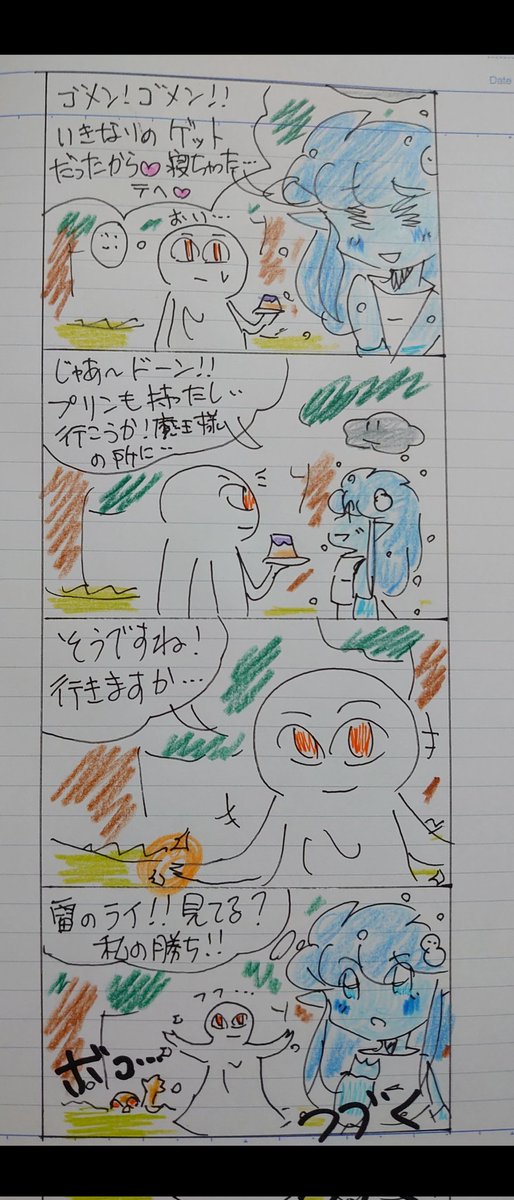 Date
ゴメン!ゴメン!!
いきなりの ゲット
だったから♥寝ちゃった…
テヘ♥
おい…
じゃあ〜ドーン!!
プリンも持ったし…
行こうか!魔王様
の所に…
そうですね!
行きますか…
雷のライ!!見てる?
私の勝ち!!
フフ…
ボコ…
つづく